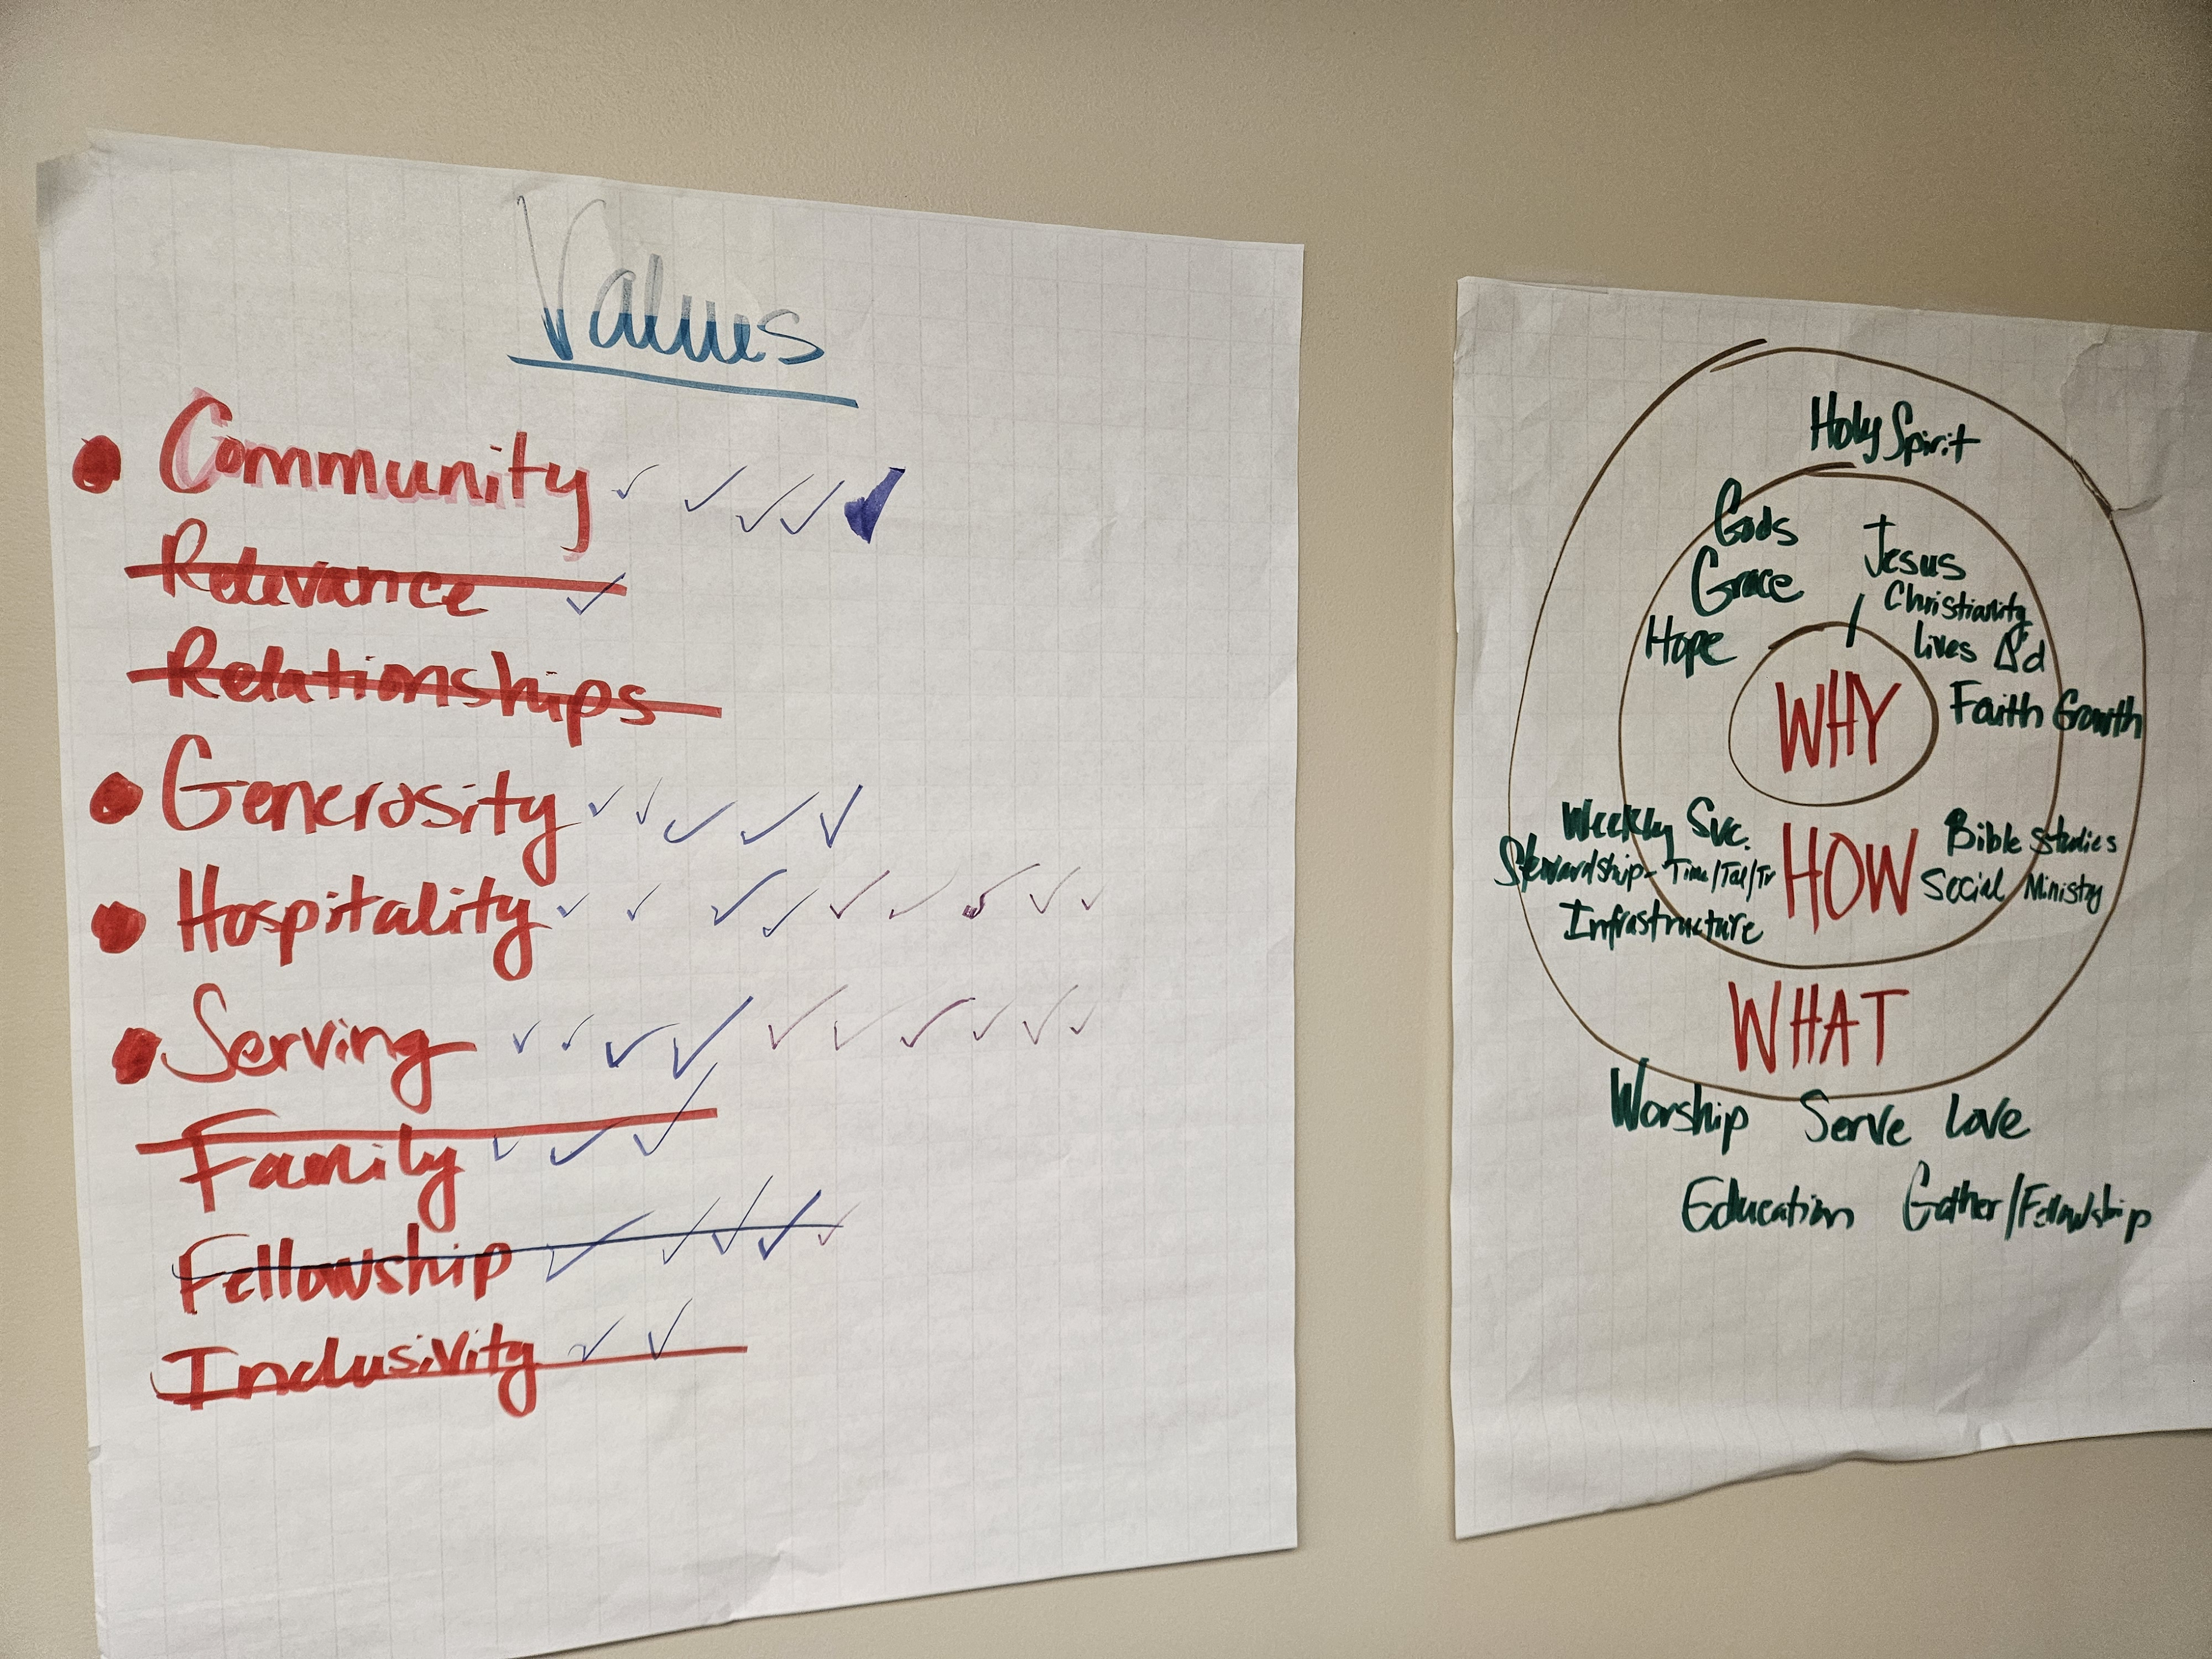 Values
• Community ✓ ✓ ✓ ✓ ✓
Relevance ✓
Relationships
• Generosity ✓ ✓ ✓ ✓ ✓
• Hospitality ✓ ✓ ✓ ✓ ✓ ✓ ✓ ✓ ✓
• Serving ✓ ✓ ✓ ✓ ✓ ✓ ✓ ✓ ✓ ✓
Family ✓ ✓ ✓
Fellowship ✓ ✓ ✓ ✓ ✓
Inclusivity ✓ ✓
Holy Spirit
Gods
Grace
Hope
Jesus
Christianity
Lives Δ'd
Faith Growth
WHY
Weekly Svc.
Stewardship - Time/Tal/Tr
Infrastructure
HOW
Bible Studies
Social Ministry
WHAT
Worship Serve Love
Education Gather/Fellowship